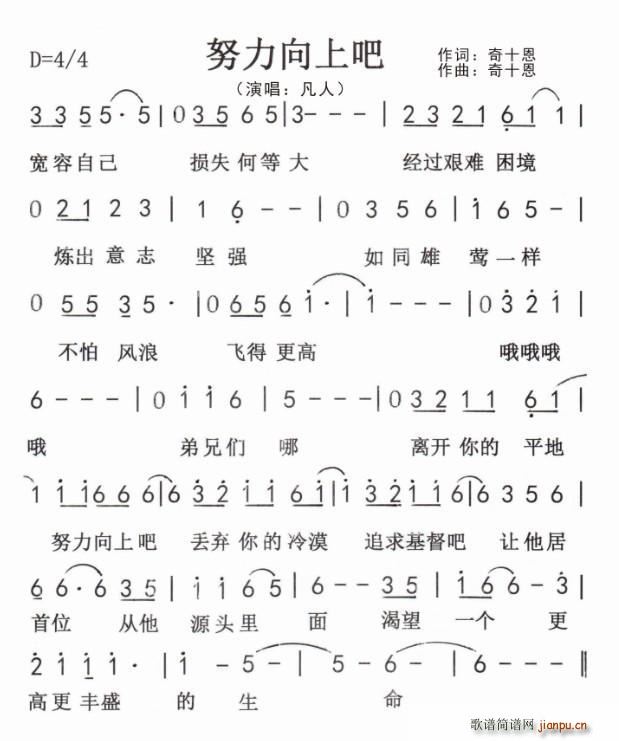 努力向上吧
D=4/4
作词：奇十恩
作曲：奇十恩
（演唱：凡人）
3 3 5 5 5· 5 | 0 3 5 6 5 | 3 - - - | 2 3 2 1 6 1 1 |
宽容自己 损失何等大 经过艰难 困境
0 2 1 2 3 | 1 6 - - | 0 3 5 6 | 1 6 5 - |
炼出意志 坚强 如同雄 莺一样
0 5 5 3 5 · | 0 6 5 6 1 · | 1 - - - | 0 3 2 1 |
不怕 风浪 飞得更高 哦哦哦
6 - - - | 0 1 1 6 | 5 - - - | 0 3 2 1 1 1 6 1 |
哦 弟兄们 哪 离开你的 平地
1 1 1 6 6 6 6 | 6 3 2 1 1 6 1 | 1 3 2 2 1 6 6 6 | 6 3 5 6 |
努力向上吧 丢弃你的冷漠 追求基督吧 让他居
6 6 · 6 3 5 | 1 1 6 5 | 6 - - 3 5 | 1 6 6 - 3 |
首位 从他 源头里 面 渴望一个 更
2 1 1 1 · | 1 - 5 - | 5 - 6 - | 6 - - - ‖
高更丰盛 的 生 命
歌谱简谱网
jianpu.cn